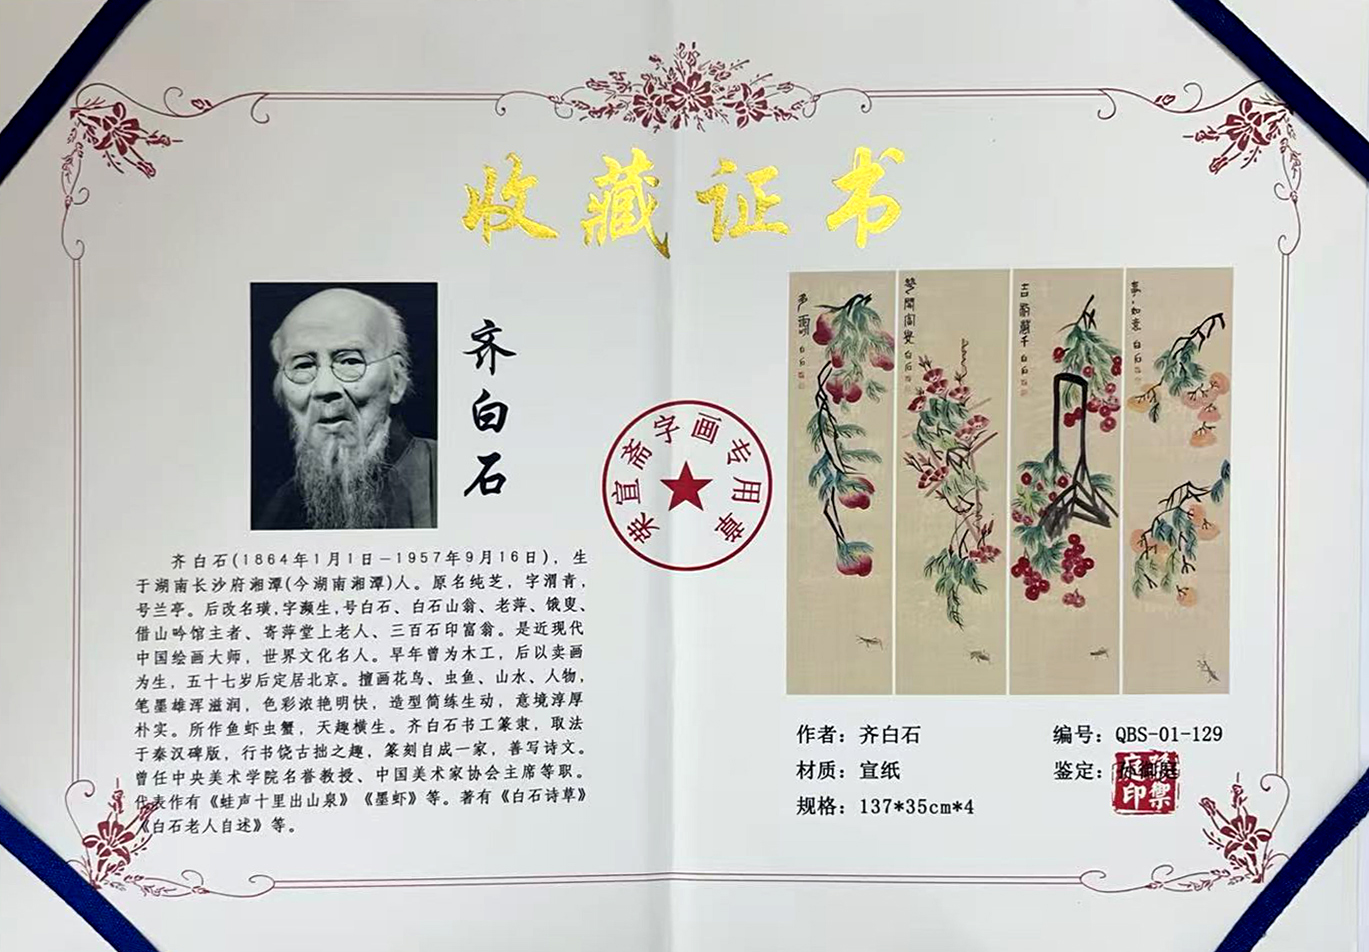 收藏证书
齐白石
齐白石(1864年1月1日—1957年9月16日)，生
于湖南长沙府湘潭(今湖南湘潭)人。原名纯芝，字渭青，
号兰亭。后改名璜,字濒生,号白石、白石山翁、老萍、饿叟、
借山吟馆主者、寄萍堂上老人、三百石印富翁。是近现代
中国绘画大师，世界文化名人。早年曾为木工，后以卖画
为生，五十七岁后定居北京。擅画花鸟、虫鱼、山水、人物，
笔墨雄浑滋润，色彩浓艳明快，造型简练生动，意境淳厚
朴实。所作鱼虾虫蟹，天趣横生。齐白石书工篆隶，取法
于秦汉碑版，行书饶古拙之趣，篆刻自成一家，善写诗文。
曾任中央美术学院名誉教授、中国美术家协会主席等职。
代表作有《蛙声十里出山泉》《墨虾》等。著有《白石诗草》
《白石老人自述》等。
荣宣斋字画专用章
白石
白石
白石
事事如意 白石
作者：齐白石
编号：QBS-01-129
材质：宣纸
鉴定：孙御庭
规格：137*35cm*4